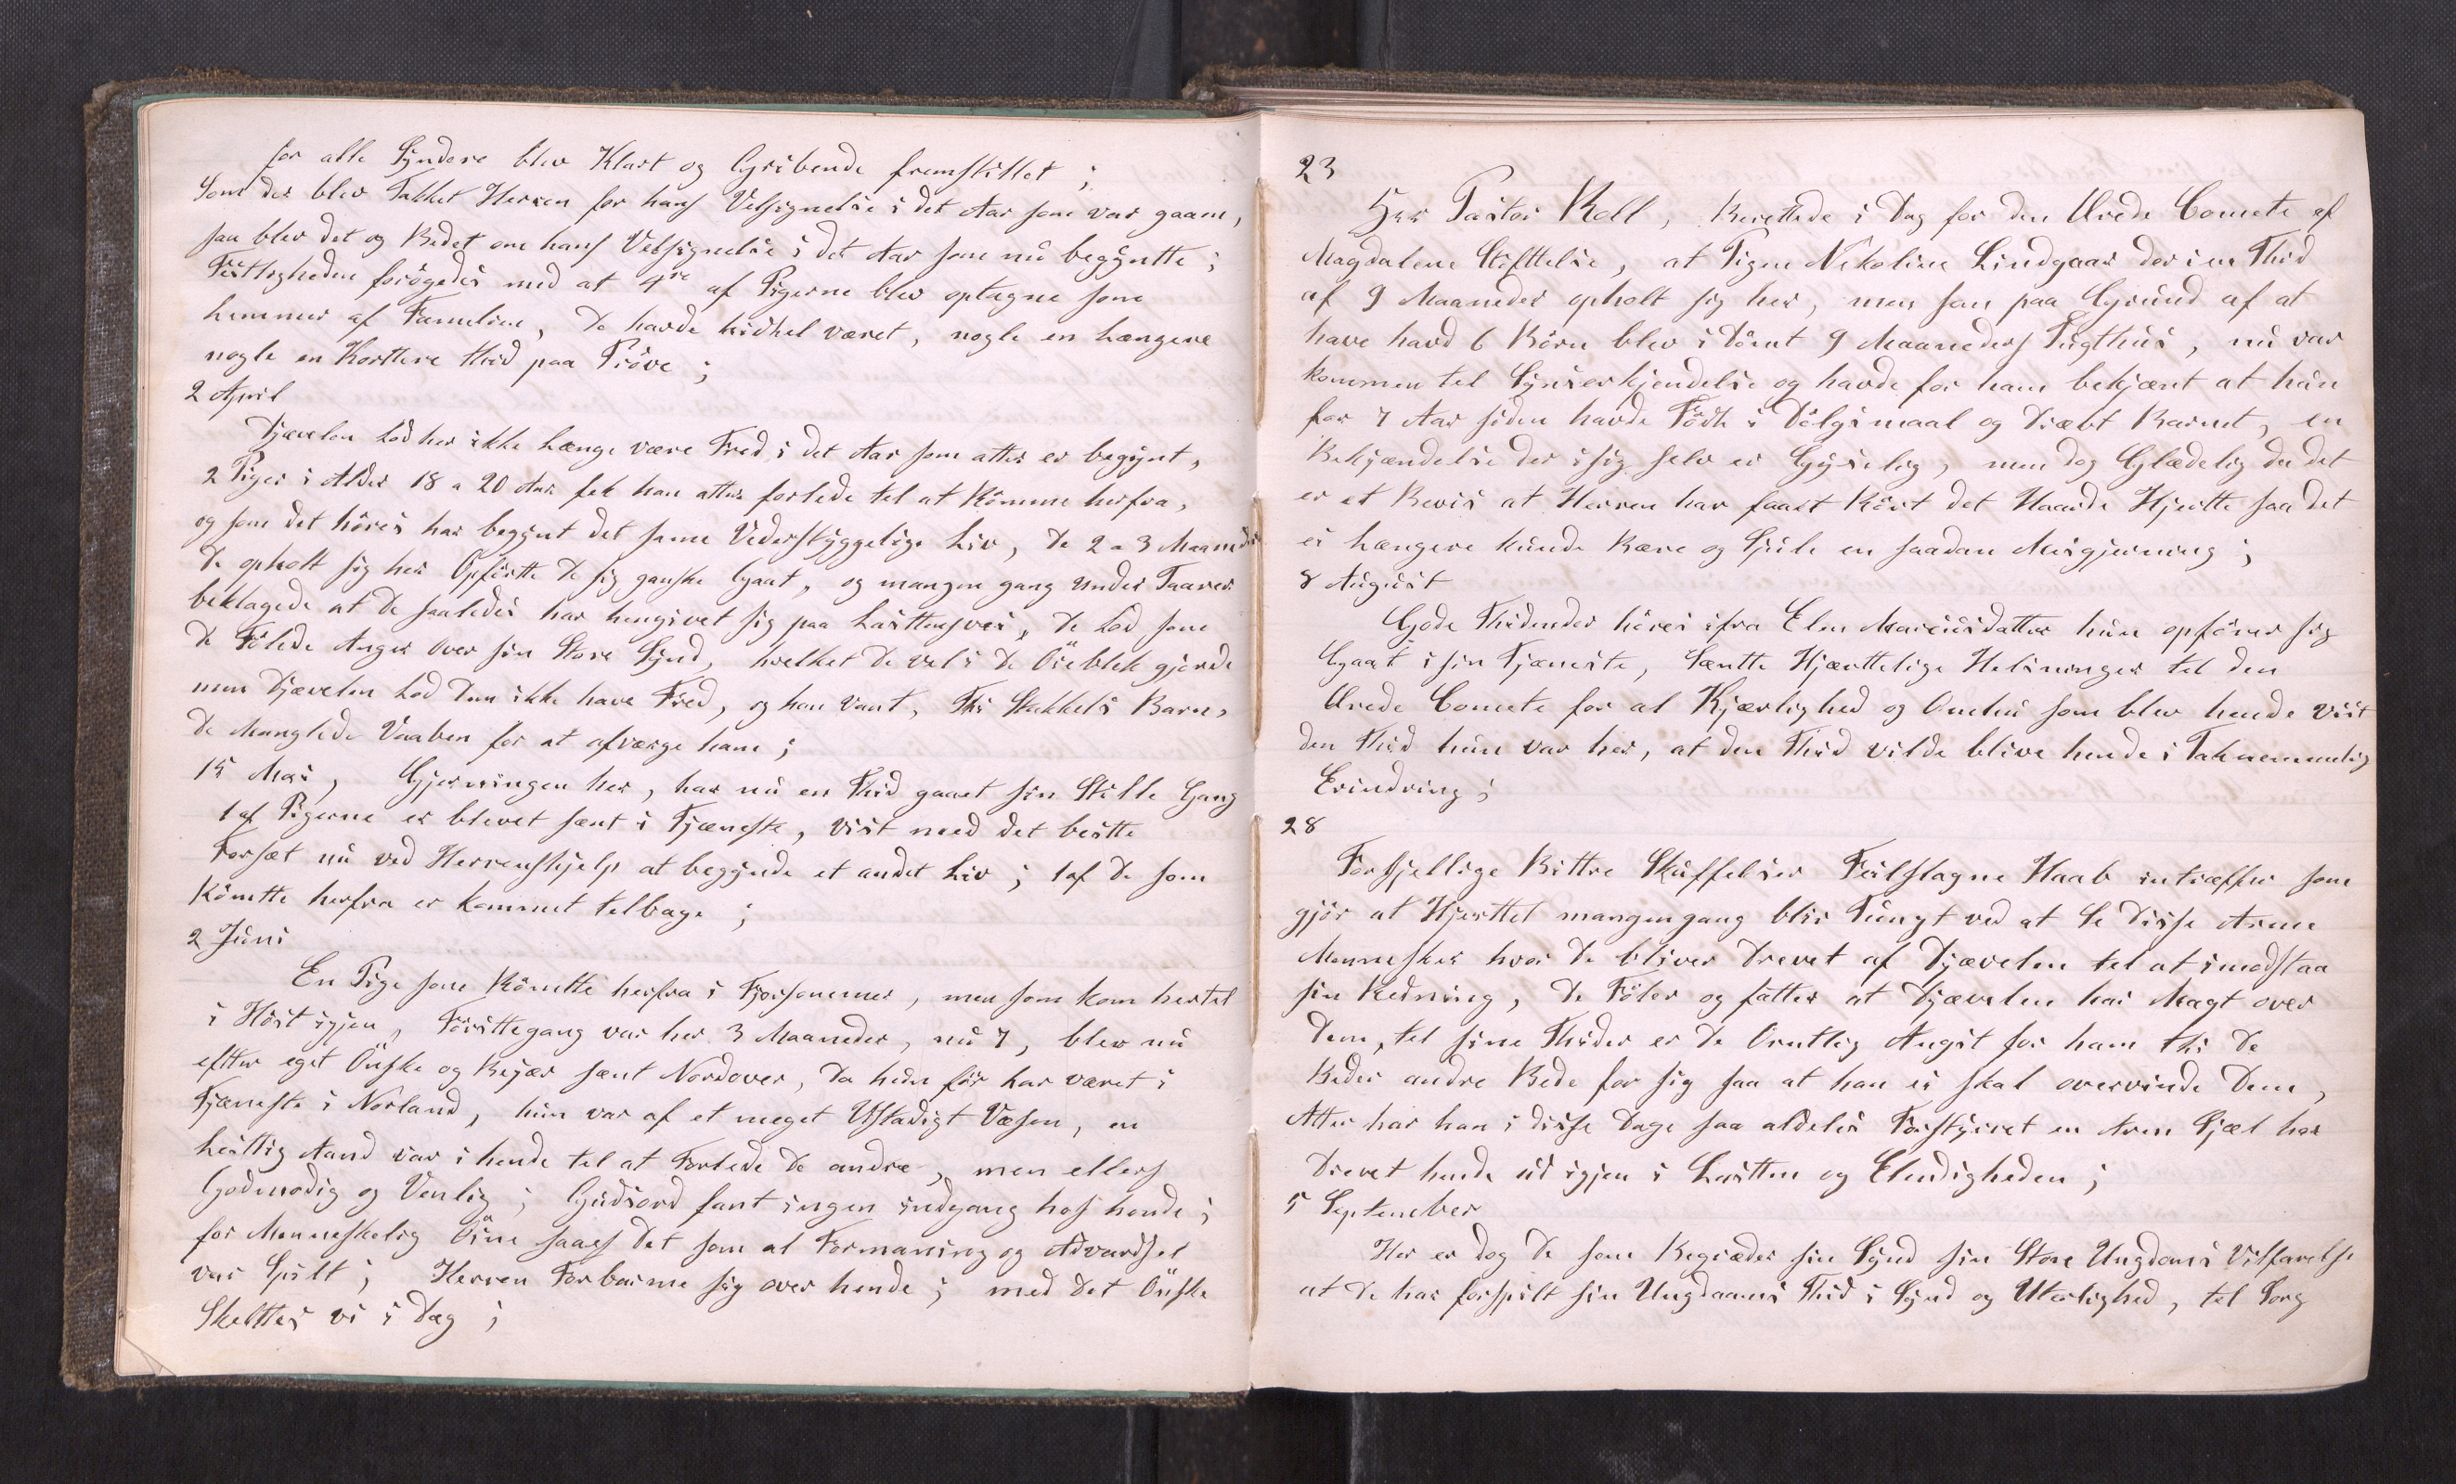 for alle Syndere blev Klart og Gribende fremstillet ;
Som der blev Takket Herren for hans Velsignelse i det Aar som var gaaen,
saa blev det og Bedet om hans Velsignelse i det Aar som nu begyntte ;
Festligheden forögedes med at 4re af Pigerne blev optagne som
lemmer af Familien, De havde hidtil været, nogle en Længere
nogle en Korttere thid paa Pröve ;
2 April
Djævelen Lod her ikke Længe være Fred i det Aar som atter er begynt,
2 Piger i Alder 18 a 20 Aar fek han atter forlede tel at Römme herfra,
og som det höres har begynt det samme Vederstyggelige Liv, De 2 a 3 Maaneder
De opholt sig her Opförtte De sig ganske Gaat, og mangen gang under Taarer
beklagede at De saaledes har hengivet sig paa Lasttensvei, De Lod som
De Fölede Anger over sin Store Synd, hvelket De vel i De Öieblek gjorde
men Djævelen Lod Dem ikke have Fred, og han vant, Thi Stakkels Barn,
De Manglede Vaaben for at afværge ham ;
15 Mai, Gjerningen her, har nu en Thid gaaet sin Stille Gang
1 af Pigerne er blevet sent i Tjæneste, vist med det bestte
Forsæt nu ved Herrenshjelp at begynde et andet Liv ; 1 af De som
Römtte herfra er kommet telbage ;
2 Juni
En Pige som Römtte herfra i Fjorsommer, men som kom hertel
i Höst igjen, Förstegang var her 3 Maaneder, nu 7, blev nu
eftter eget Önske og Begjær sent Nordover, Da hun för har været i
Tjæneste i Norland, hun var af et meget Ustadigt Væsen, en
Lesttig Aand var i hende tel at Forlede De andre, men ellers
Godmodig og Venlig ; Gudsord fant ingen indgang hos hende ;
for Menneskelig Öine saaes det som al Formaning og Advardsel
var Spilt ; Herren Forbarme sig over hende ; med Det Önske
Skelttes vi i Dag ;
23
Her Pastor Roll, Berettede i Dag for den Ærede Comete af
Magdalene Stifttelse, at Pigen Nekoline Lindgaar der i en Thid
af 9 Maaneder opholt sig her, men som paa Grund af at
have havd 6 Börn blev i dömt 9 Maaneders Tugthus, nu var
kommen tel Synserkjendelse og havde for ham bekjænt at hun
for 7 Aar siden havde Födt i Dölgsmaal og Dræbt Barnet, en
Bekjændelse der i sig selv er Gyselig, men dog Glædelig da det
er et Bevis at Herren har faaet Rört det Haarde Hjertte saa det
ei Længere kunde Bære og Skjule en saadan Misgjerning ;
8 August
Gode Thidender höres ifra Elen Marcusdatter hun opförer sig
Gaat i sin Tjæneste, Sentte Hjerttelige Helsninger tel den
Ærede Comete for al Kjærlighed og Omhu som blev hende Vist
den Thid hun var her, at den Thid vilde blive hende i Taknemmelig
Erindring ;
28
Forsjellige Bittre Skuffelser Feilslagne Haab intræffer som
gjör at Hjerttet mangengang blir Tungt ved at Se Disse Arme
Mennesker hvor De bliver Drevet af Djævelen tel at imodstaa
sin Redning, De Föler og fatter at Djævelen har Magt over
Dem, tel sine Thider er De Orntlig Angst for ham thi De
Beder andre Bede for sig saa at han ei skal overvinde Dem,
Atter har han i disse Dage saa aldeles Forstyrret en Arm Sjæl har
Drevet hende ud igjen i Lastten og Elendigheden ;
5 September
Her er dog De som Begræder sin Synd sin Store Ungdoms Vilfarelse
at De har forspilt sin Ungdaams Thid i Synd og Uterlighed, tel Sorg